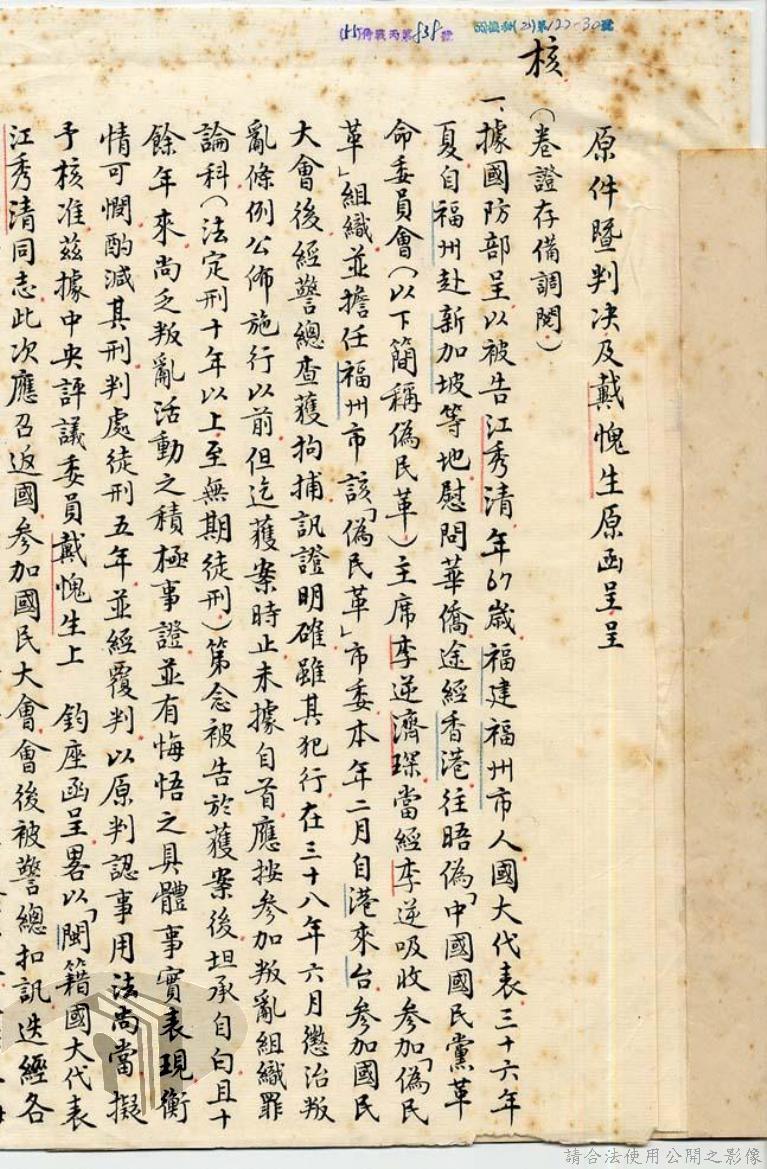 (55)侍戰丙第838號
核
原件暨判决及戴愧生原函呈呈
(卷證存備調閱)
一、據國防部呈以被告江秀清年67歲福建福州市人國大代表三十六年
夏自福州赴新加坡等地慰問華僑途經香港往晤偽「中國國民黨革
命委員會(以下簡稱偽民革)主席李逆濟琛當經李逆吸收參加「偽民
革」組織並擔任福州市該「偽民革」市委本年二月自港來台參加國民
大會後經警總查獲拘捕訊證明確雖其犯行在三十八年六月懲治叛
亂條例公佈施行以前但迄獲案時止未據自首應按參加叛亂組織罪
論科(法定刑十年以上至無期徒刑)第念被告於獲案後坦承自白且十
餘年來尚乏叛亂活動之積極事證並有悔悟之具體事實表現衡
情可憫酌減其刑判處徒刑五年並經覆判以原判認事用法尚當擬
予核准茲據中央評議委員戴愧生上 鈞座函呈畧以「閩籍國大代表
江秀清同志此次應召返國參加國民大會會後被警總扣訊迭經各
請合法使用公開之影像